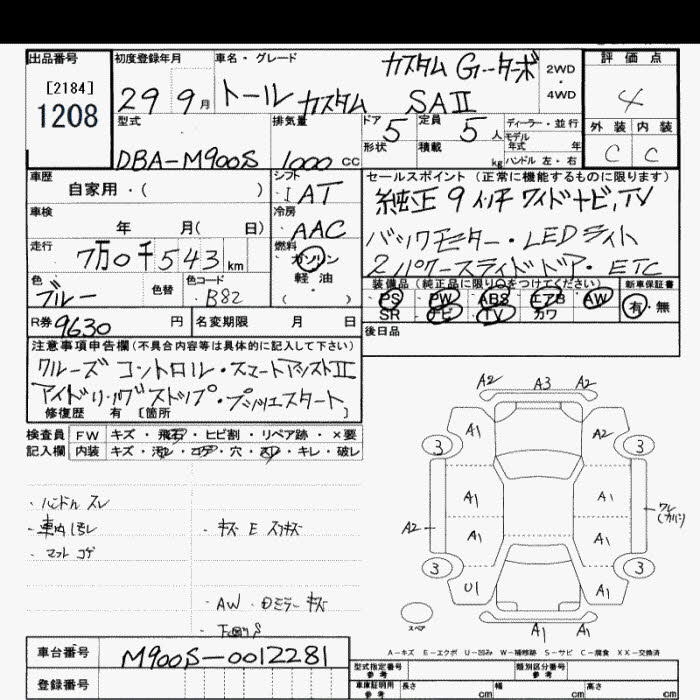 出品番号
[2184]
1208
初度登録年月
29 9月
車名・グレード
カスタム G・ターボ
トール カスタム SAⅡ
2WD
4WD
評価点
4
外装 内装
C C
型式
DBA-M900S
排気量
1000 cc
ドア 5
形状
定員 5 人
積載 kg
ディーラー・並行
モデル
年式 年
ハンドル 左・右
車歴
自家用・( )
シフト
IAT
車検
年 月( 日)
冷房
AAC
走行
7万0千543km
燃料
ガソリン
軽油
( )
色
ブルー
色替
色コード
B82
R券 9630 円
名変期限 月 日
セールスポイント(正常に機能するものに限ります)
純正9インチワイドナビ,TV
バックモニター・LEDライト
2パワースライドドア・ETC
装備品(純正品に限り○をつけてください)
PS PW ABS エアB AW
SR ナビ TV カワ
新車保証書
有・無
後日品
注意事項申告欄(不具合内容等は具体的に記入して下さい)
クルーズコントロール・スマートアシストⅡ
アイドリングストップ・プッシュスタート
修復歴 有 〔箇所
検査員 FW キズ・飛石・ヒビ割・リペア跡・×要
記入欄 内装 キズ・汚レ・コゲ・穴・スレ・キレ・破レ
・ハンドルスレ
・車内ヨゴレ
・マットコゲ
・キズ E スリキズ
・AW・Dミラーキズ
・下廻りS
A2 A3 A2
A1 A2
3 3
A1 A1
A2 A1 A1
ワレ
(カバー)
3 3
U1 A1
スペア
A1 A1
A-キズ E-エクボ U-凹み W-補修跡 S-サビ C-腐食 XX-交換済
車台番号
M900S-0012281
登録番号
型式指定番号
参考
類別区分番号
参考
車庫証明用
参考
長さ cm
幅 cm
高さ cm